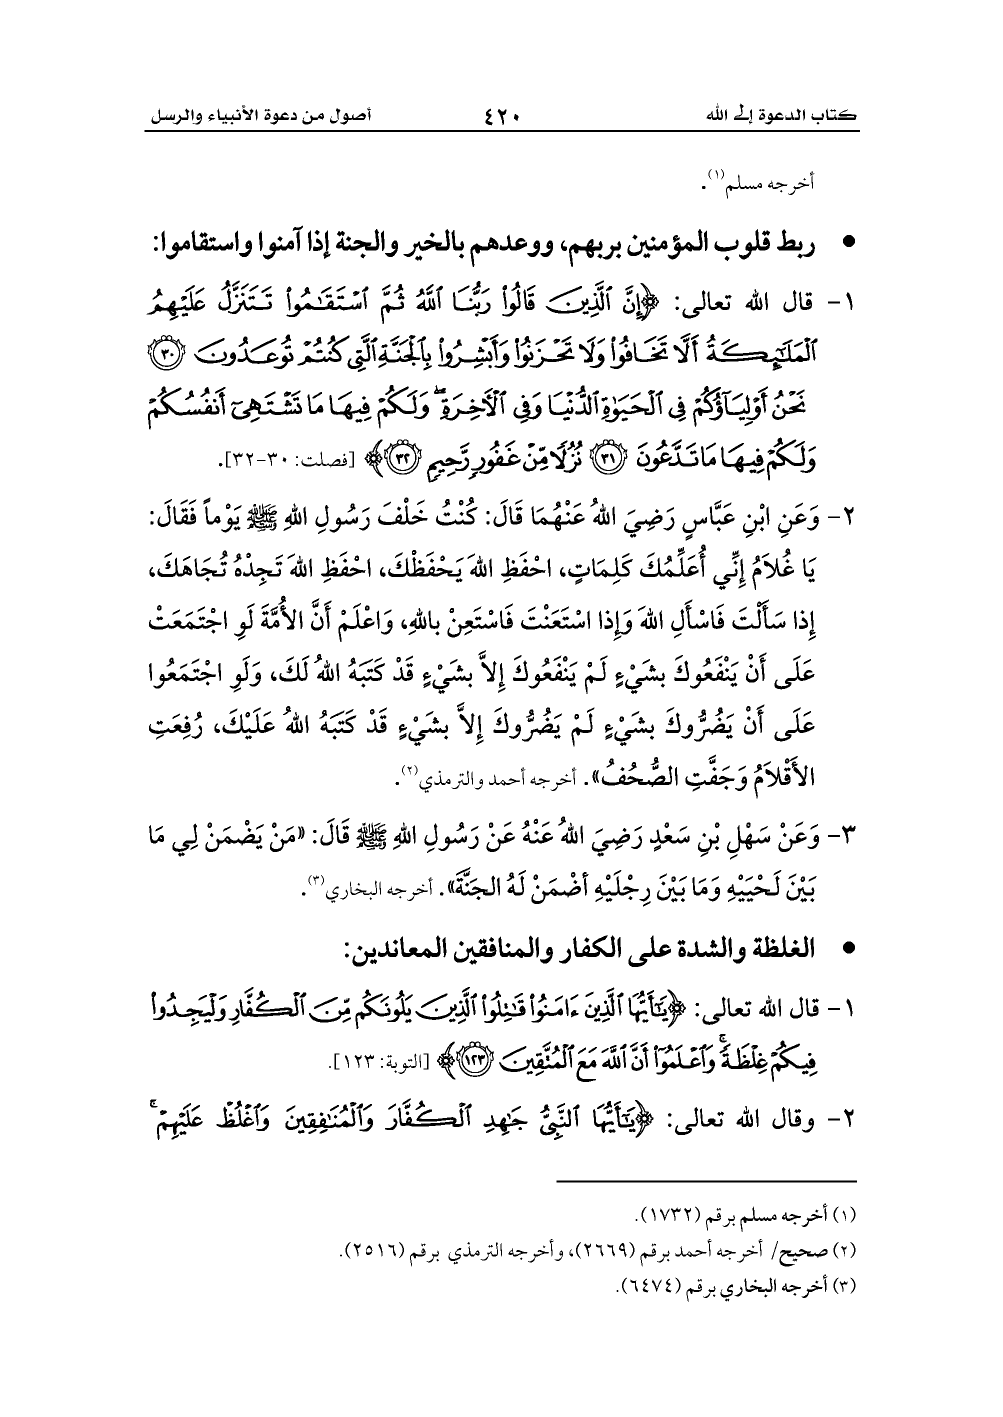 كتاب الدعوة إلى الله ٤٢٠ أصول من دعوة الأنبياء والرسل
أخرجه مسلم(١).
• ربط قلوب المؤمنين بربهم، ووعدهم بالخير والجنة إذا آمنوا واستقاموا:
١- قال الله تعالى: ﴿إِنَّ ٱلَّذِينَ قَالُوا۟ رَبُّنَا ٱللَّهُ ثُمَّ ٱسْتَقَـٰمُوا۟ تَتَنَزَّلُ عَلَيْهِمُ
ٱلْمَلَـٰٓئِكَةُ أَلَّا تَخَافُوا۟ وَلَا تَحْزَنُوا۟ وَأَبْشِرُوا۟ بِٱلْجَنَّةِ ٱلَّتِى كُنتُمْ تُوعَدُونَ ٣٠
نَحْنُ أَوْلِيَآؤُكُمْ فِى ٱلْحَيَوٰةِ ٱلدُّنْيَا وَفِى ٱلْـَٔاخِرَةِ ۖ وَلَكُمْ فِيهَا مَا تَشْتَهِىٓ أَنفُسُكُمْ
وَلَكُمْ فِيهَا مَا تَدَّعُونَ ٣١ نُزُلًا مِّنْ غَفُورٍ رَّحِيمٍ ٣٢﴾ [فصلت: ٣٠-٣٢].
٢- وَعَنِ ابْنِ عَبَّاسٍ رَضِيَ اللهُ عَنْهُمَا قَالَ: كُنْتُ خَلْفَ رَسُولِ اللهِ ﷺ يَوْماً فَقَالَ:
يَا غُلَامُ إِنِّي أُعَلِّمُكَ كَلِمَاتٍ، احْفَظِ اللهَ يَحْفَظْكَ، احْفَظِ اللهَ تَجِدْهُ تُجَاهَكَ،
إِذا سَأَلْتَ فَاسْأَلِ اللهَ وَإِذا اسْتَعَنْتَ فَاسْتَعِنْ بِاللهِ، وَاعْلَمْ أَنَّ الأُمَّةَ لَوِ اجْتَمَعَتْ
عَلَى أَنْ يَنْفَعُوكَ بِشَيْءٍ لَمْ يَنْفَعُوكَ إِلاَّ بِشَيْءٍ قَدْ كَتَبَهُ اللهُ لَكَ، وَلَوِ اجْتَمَعُوا
عَلَى أَنْ يَضُرُّوكَ بِشَيْءٍ لَمْ يَضُرُّوكَ إِلاَّ بِشَيْءٍ قَدْ كَتَبَهُ اللهُ عَلَيْكَ، رُفِعَتِ
الأَقْلاَمُ وَجَفَّتِ الصُّحُفُ». أخرجه أحمد والترمذي(٢).
٣- وَعَنْ سَهْلِ بْنِ سَعْدٍ رَضِيَ اللهُ عَنْهُ عَنْ رَسُولِ اللهِ ﷺ قَالَ: «مَنْ يَضْمَنْ لِي مَا
بَيْنَ لَحْيَيْهِ وَمَا بَيْنَ رِجْلَيْهِ أضْمَنْ لَهُ الجَنَّةَ». أخرجه البخاري(٣).
• الغلظة والشدة على الكفار والمنافقين المعاندين:
١- قال الله تعالى: ﴿يَـٰٓأَيُّهَا ٱلَّذِينَ ءَامَنُوا۟ قَـٰتِلُوا۟ ٱلَّذِينَ يَلُونَكُم مِّنَ ٱلْكُفَّارِ وَلْيَجِدُوا۟
فِيكُمْ غِلْظَةً ۚ وَٱعْلَمُوٓا۟ أَنَّ ٱللَّهَ مَعَ ٱلْمُتَّقِينَ ١٢٣﴾ [التوبة: ١٢٣].
٢- وقال الله تعالى: ﴿يَـٰٓأَيُّهَا ٱلنَّبِىُّ جَـٰهِدِ ٱلْكُفَّارَ وَٱلْمُنَـٰفِقِينَ وَٱغْلُظْ عَلَيْهِمْ ۚ
(١) أخرجه مسلم برقم (١٧٣٢).
(٢) صحيح/ أخرجه أحمد برقم (٢٦٦٩)، وأخرجه الترمذي برقم (٢٥١٦).
(٣) أخرجه البخاري برقم (٦٤٧٤).